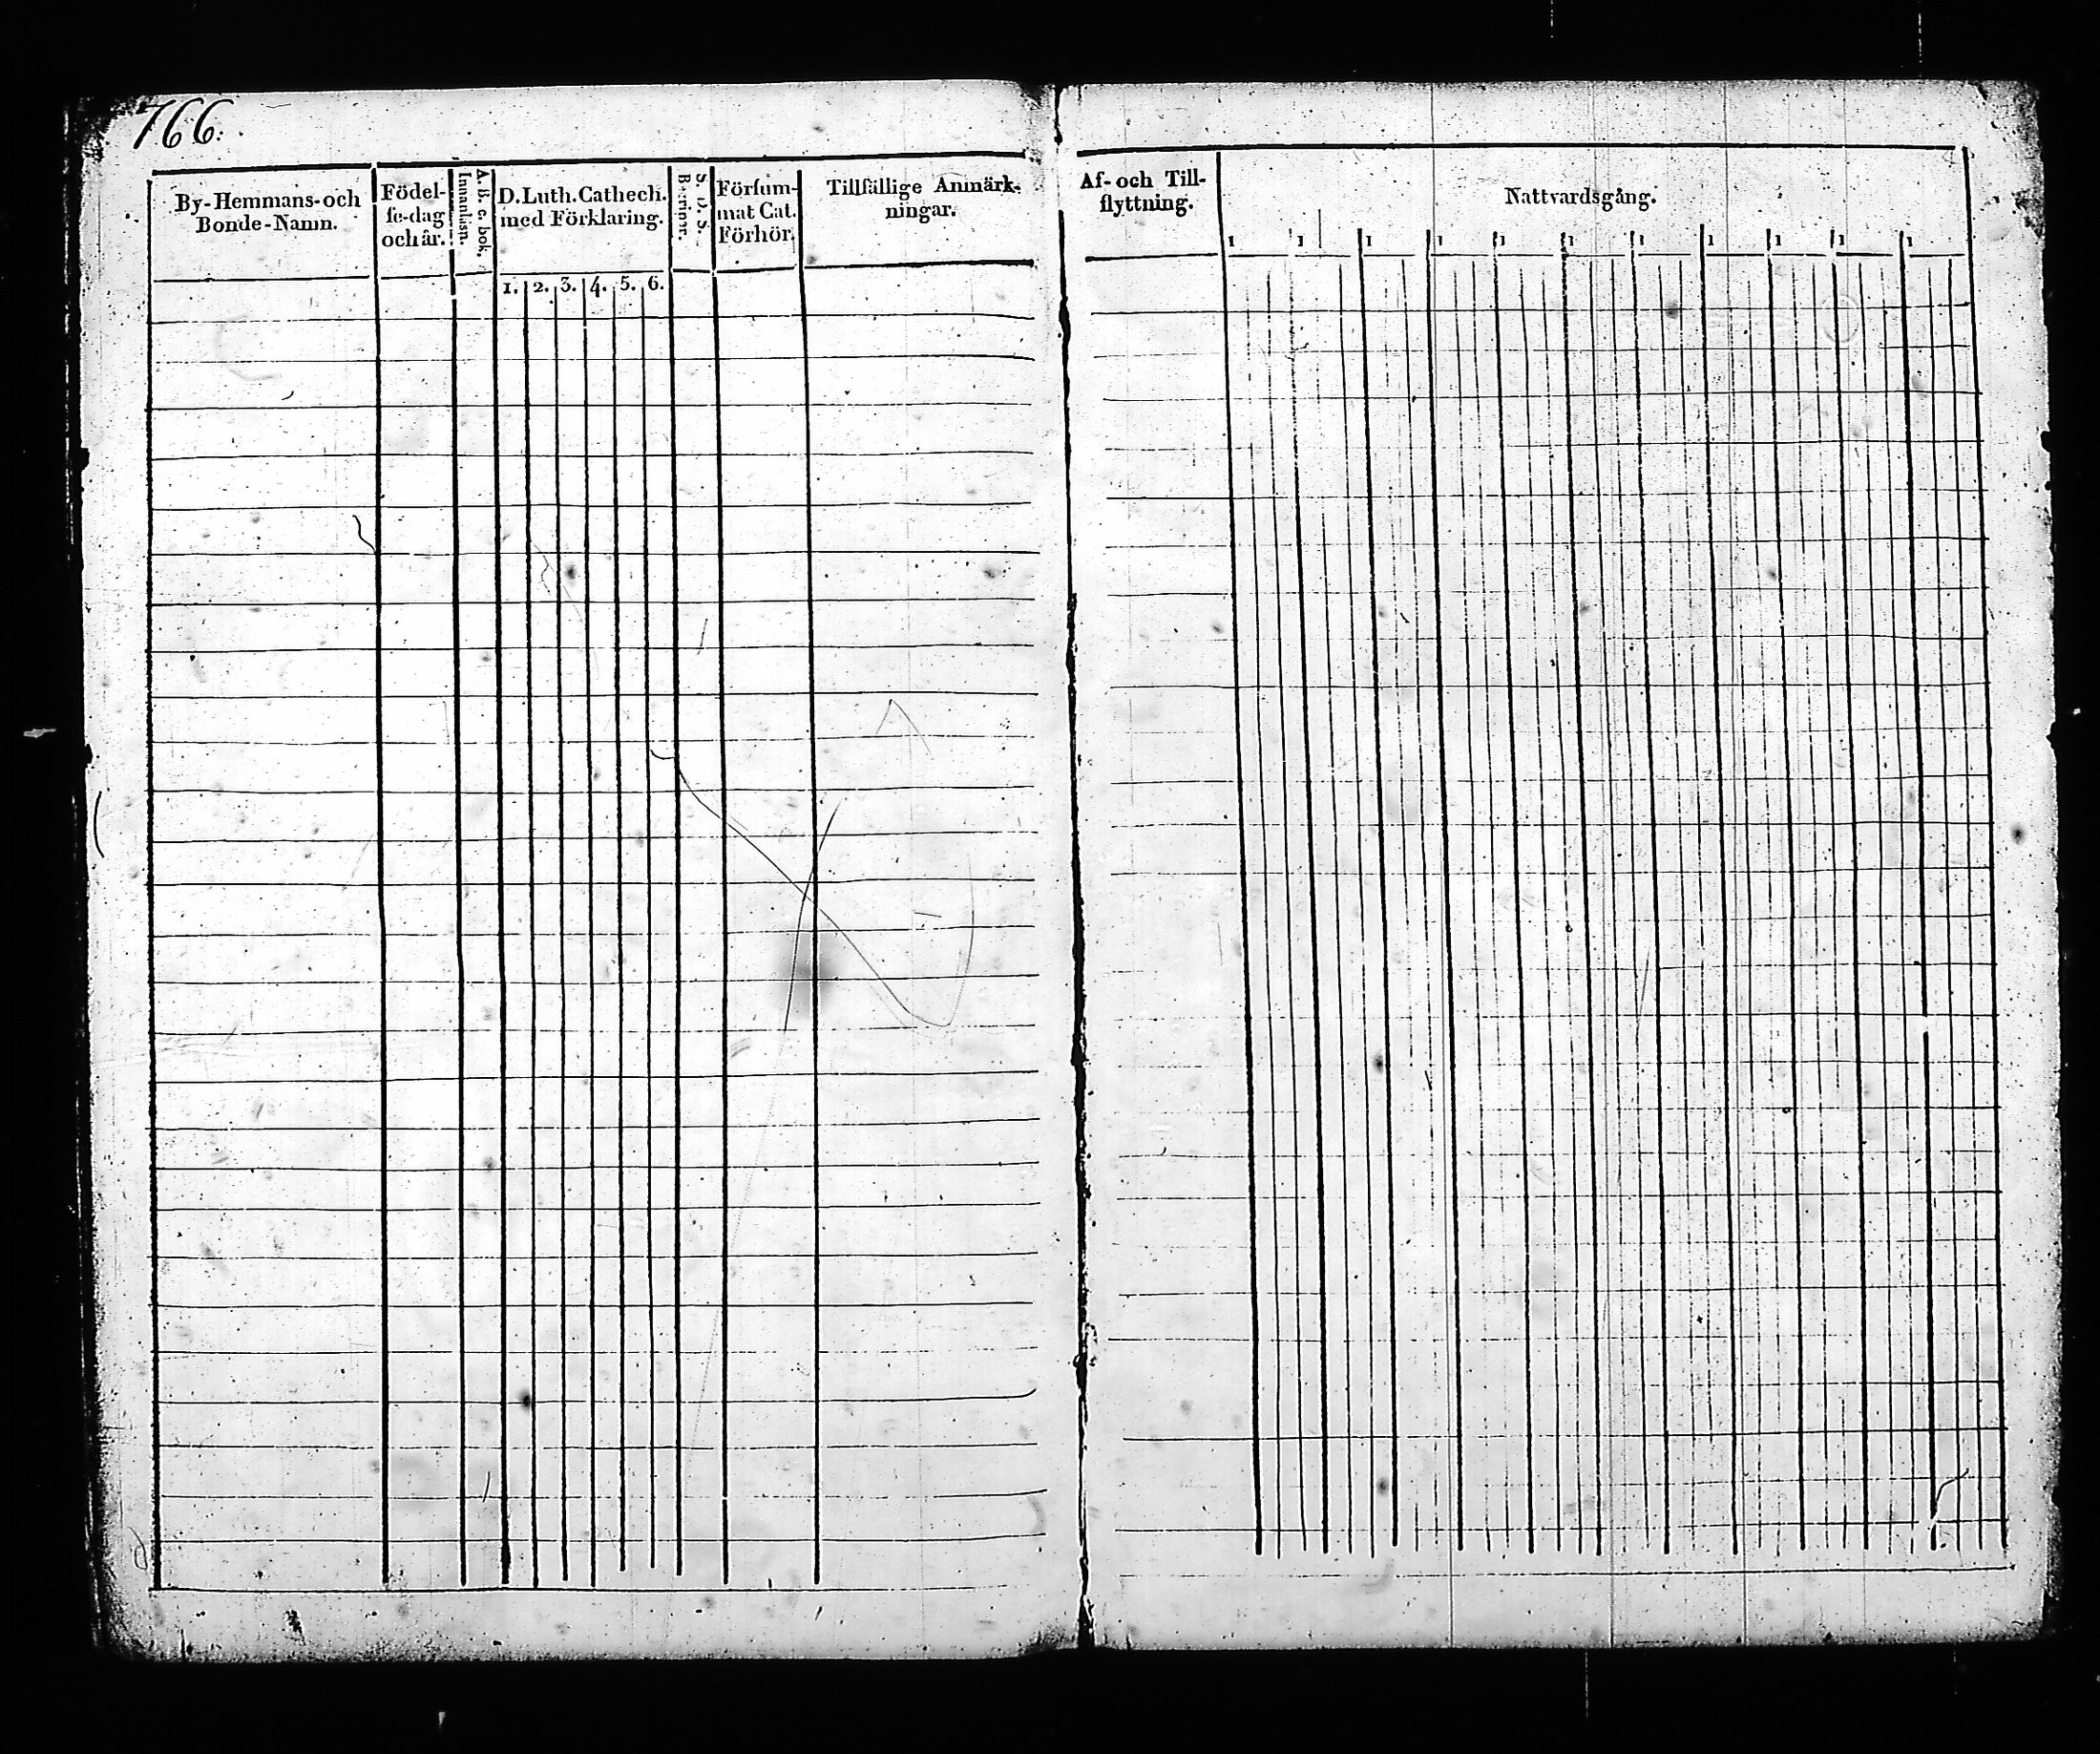 766.
By-Hemmans-och
Bonde-Namn.
Födel-
se-dag
och år.
Innanläsn.
A. B. c. bok.
D. Luth. Cathech.
med Förklaring.
1. 2. 3. 4. 5. 6.
S. v. S.
Försum-
mat Cat.
Förhör.
Tillfällige Anmärk-
ningar.
Af- och Till-
flyttning.
Nattvardsgång.
1 1 1 1 1 1 1 1 1 1 1